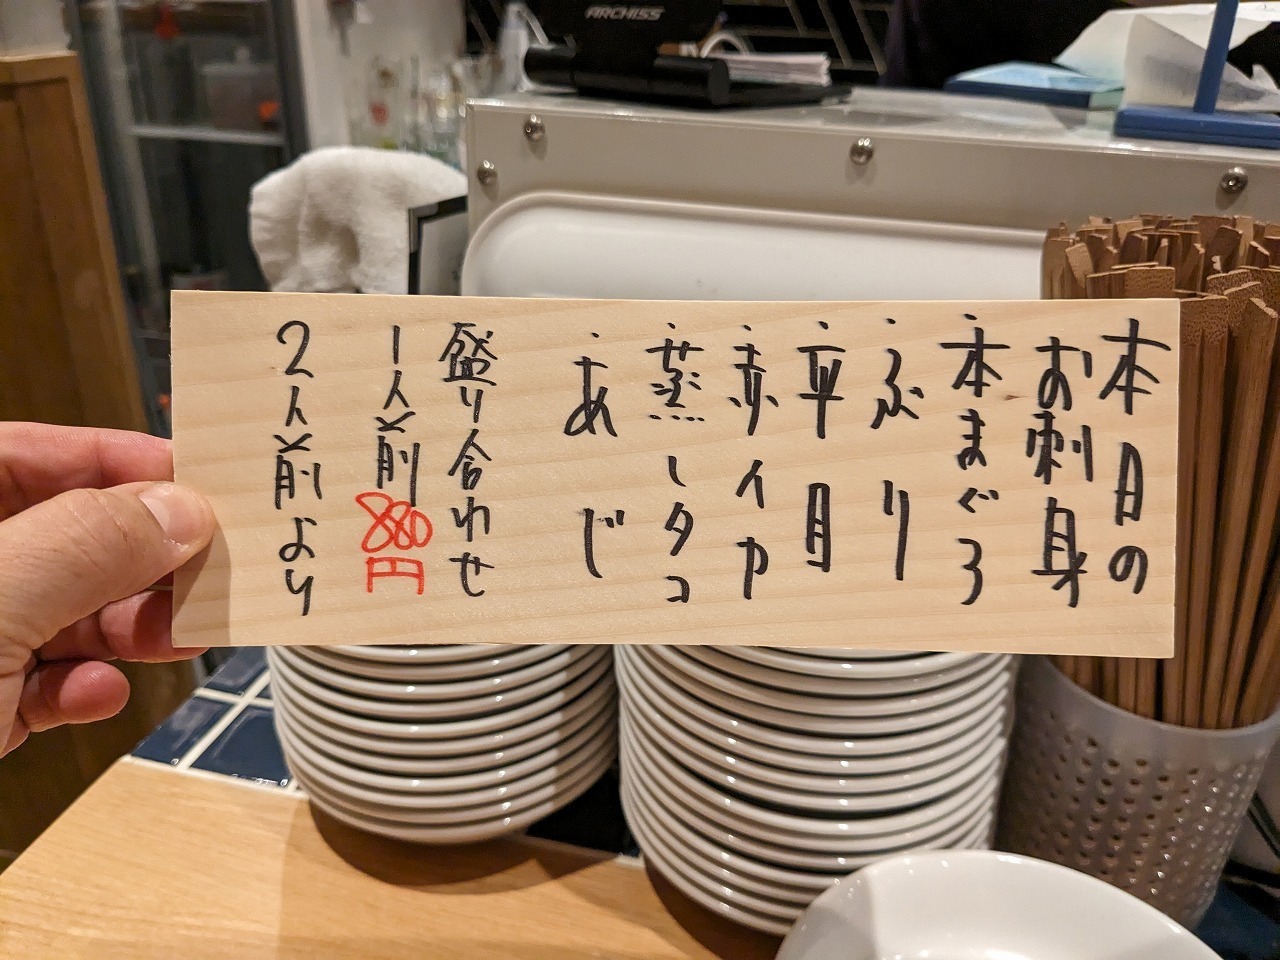 ARCHISS
本日の
お刺身
・本まぐろ
・ぶり
・平目
・赤イカ
・蒸しタコ
・あじ
盛り合わせ
1人前880円
2人前より